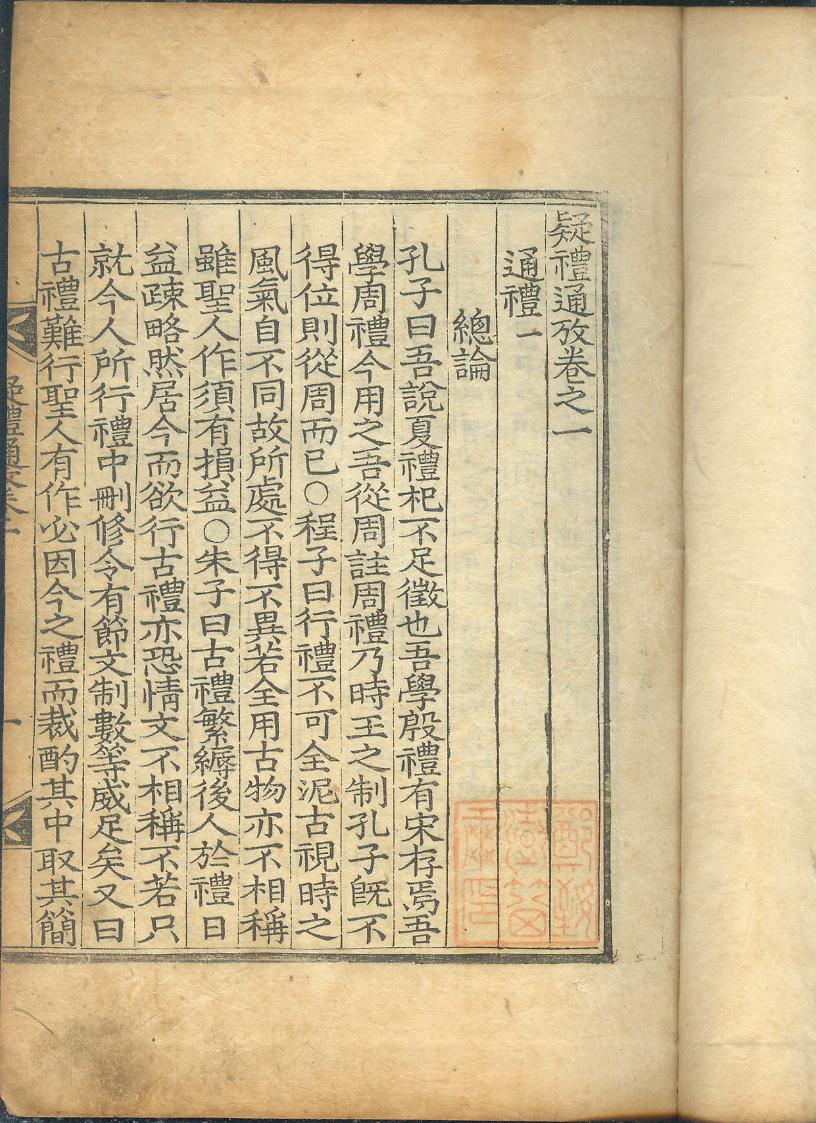 疑禮通攷卷之一
通禮一
總論
孔子曰吾說夏禮杞不足徵也吾學殷禮有宋存焉吾
學周禮今用之吾從周註周禮乃時王之制孔子旣不
得位則從周而已○程子曰行禮不可全泥古視時之
風氣自不同故所處不得不異若全用古物亦不相稱
雖聖人作須有損益○朱子曰古禮繁縟後人於禮日
益疎略然居今而欲行古禮亦恐情文不相稱不若只
就今人所行禮中刪修令有節文制數等威足矣又曰
古禮難行聖人有作必因今之禮而裁酌其中取其簡